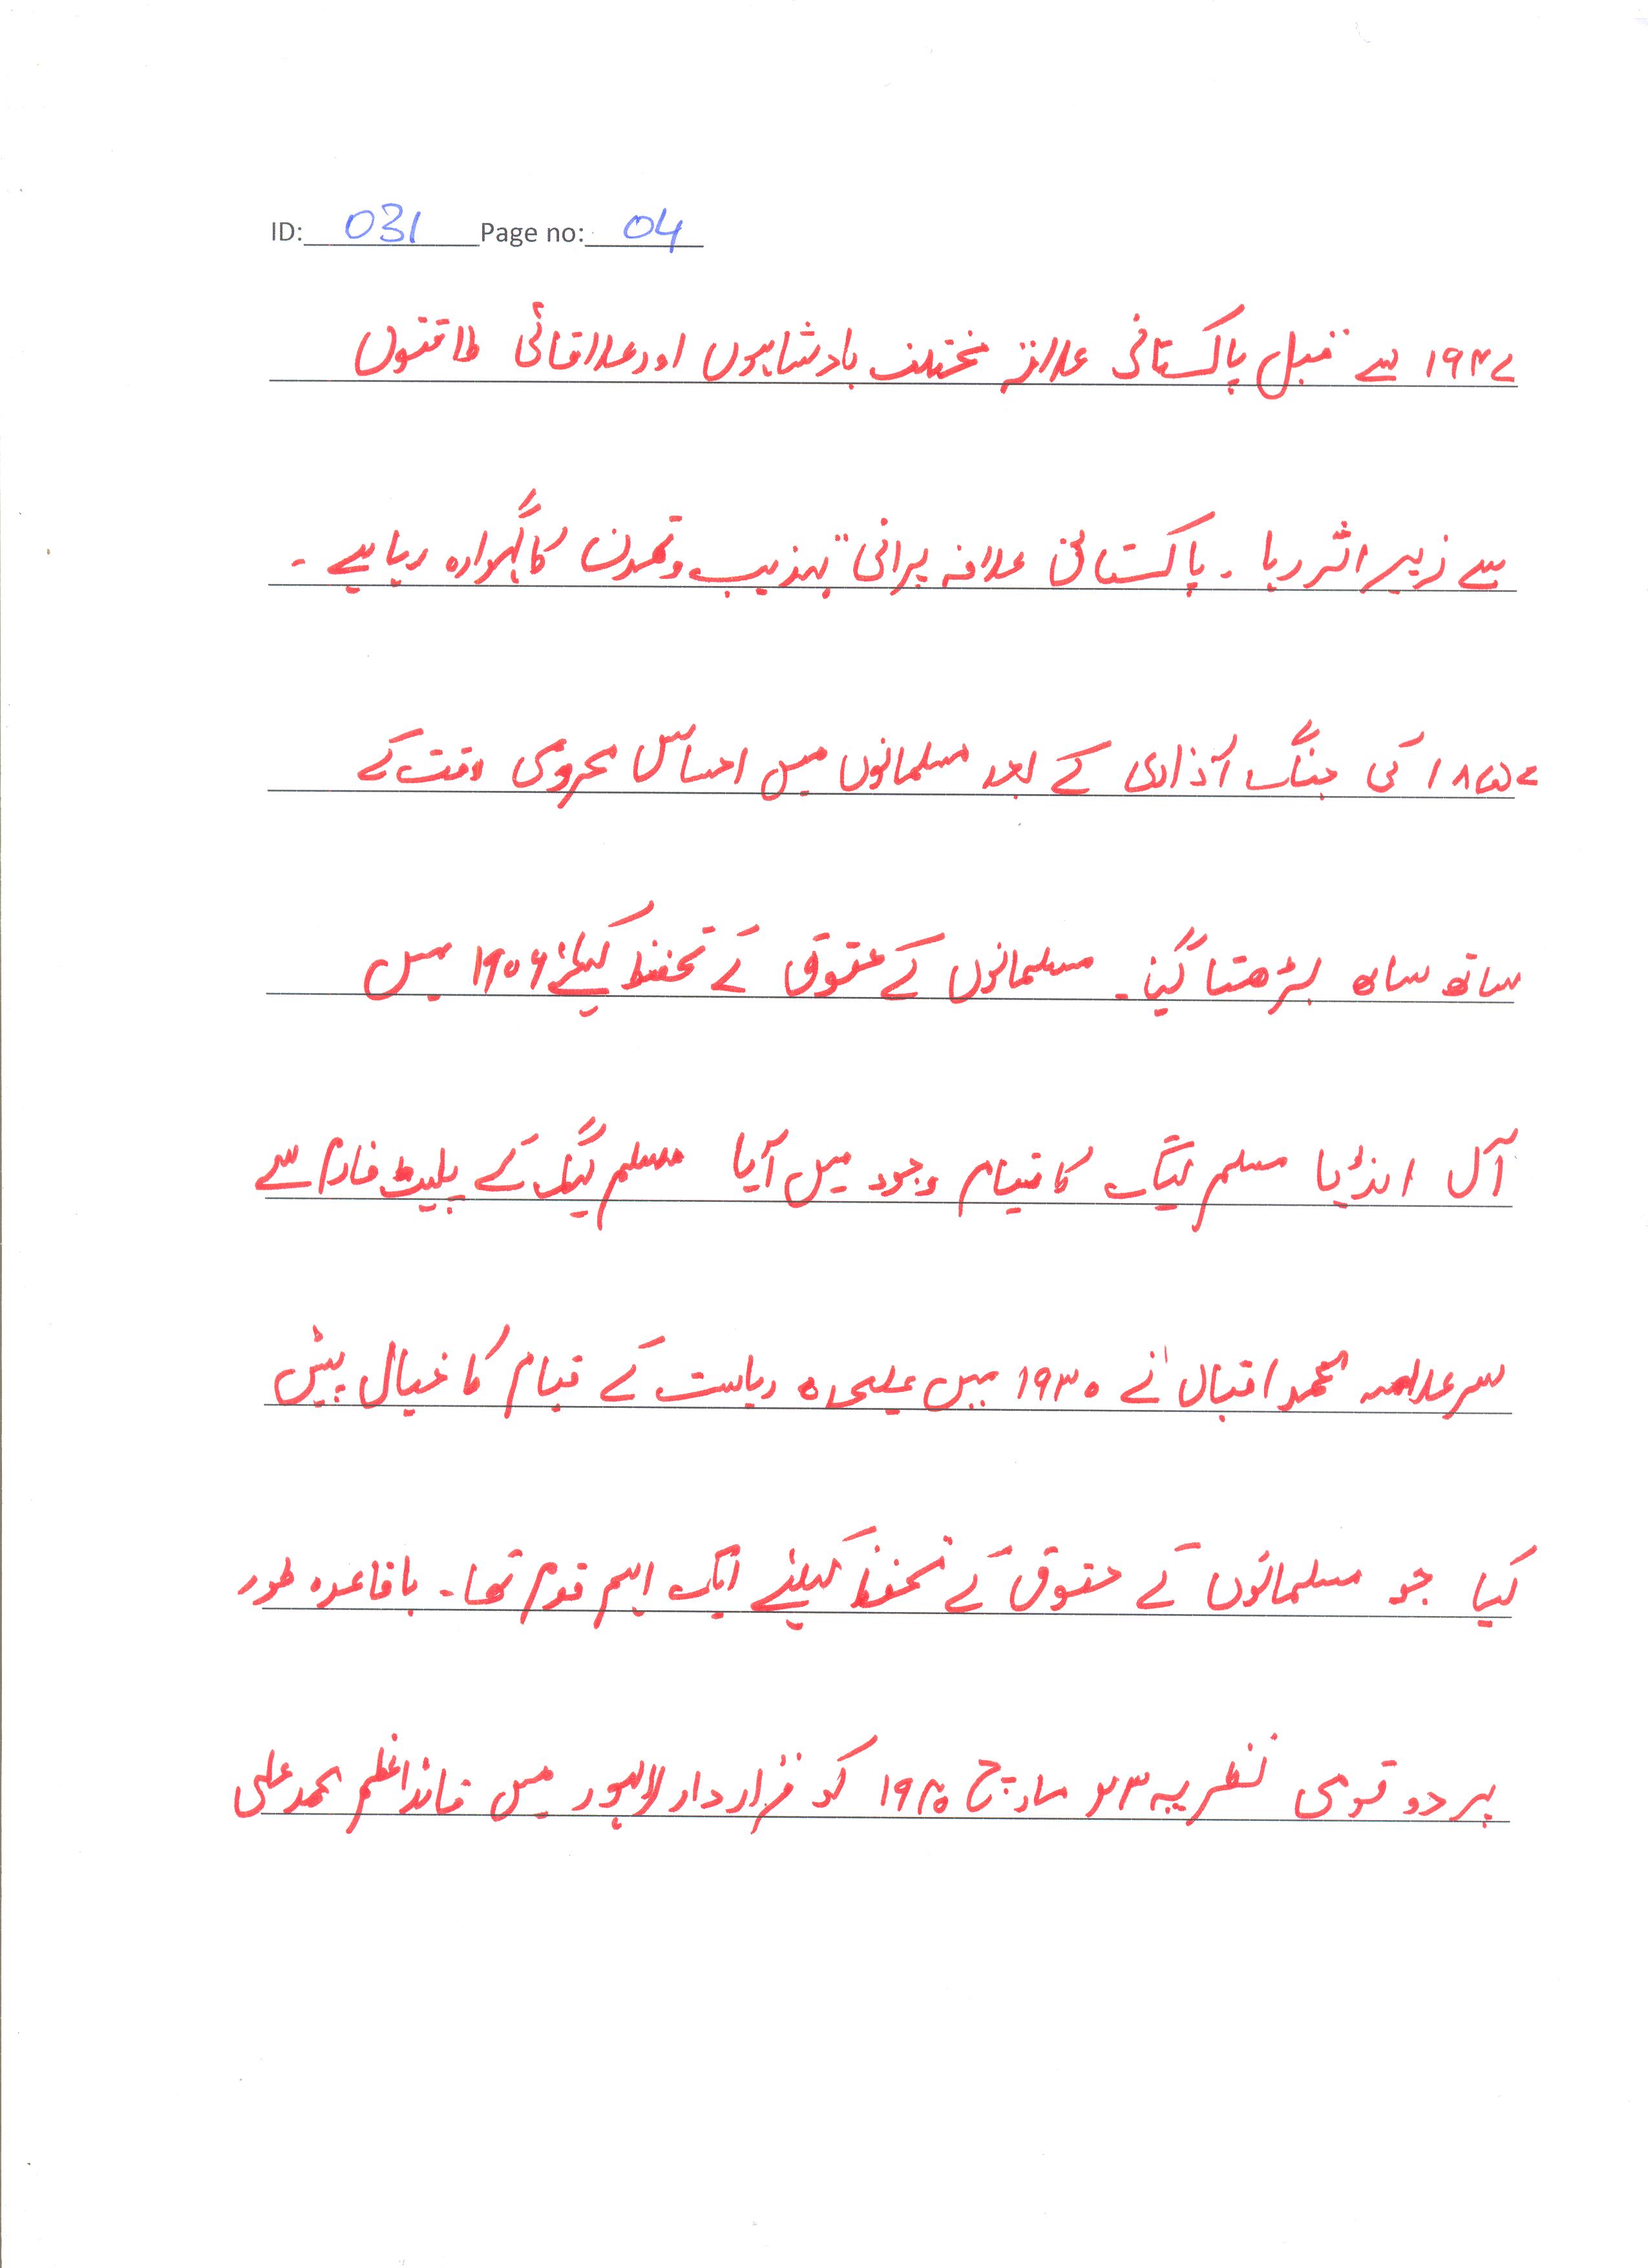 ID: 031 Page no: 04
۱۹۴۷ سے قبل پاکستانی علاقے مختلف بادشاہوں اور علاقائی طاقتوں
سے زیر اثر رہا ۔ پاکستانی علاقہ پرانی تہذیب و تمدن کا گہوارہ رہا ہے ۔
۱۸۵۷ کی جنگ آذادی کے بعد مسلمانوں میں احساس محرومی وقت کے
ساتھ ساتھ بڑھتا گیا ۔ مسلمانوں کے حقوق کے تحفظ کیلئے ۱۹۰۶ میں
آل انڈیا مسلم لیگ کا قیام وجود میں آیا مسلم لیگ کے پلیٹ فارم سے
سر علامہ محمد اقبال نے ۱۹۳۰ میں علیحدہ ریاست کے قیام کا خیال پیش
کیا جو مسلمانوں کے حقوق کے تحفظ کیلئے ایک اہم قدم تھا ۔ باقاعدہ طور
پر دو قومی نظریہ ۲۳ مارچ ۱۹۴۰ کو قرار داد لاہور میں قائد اعظم محمد علی